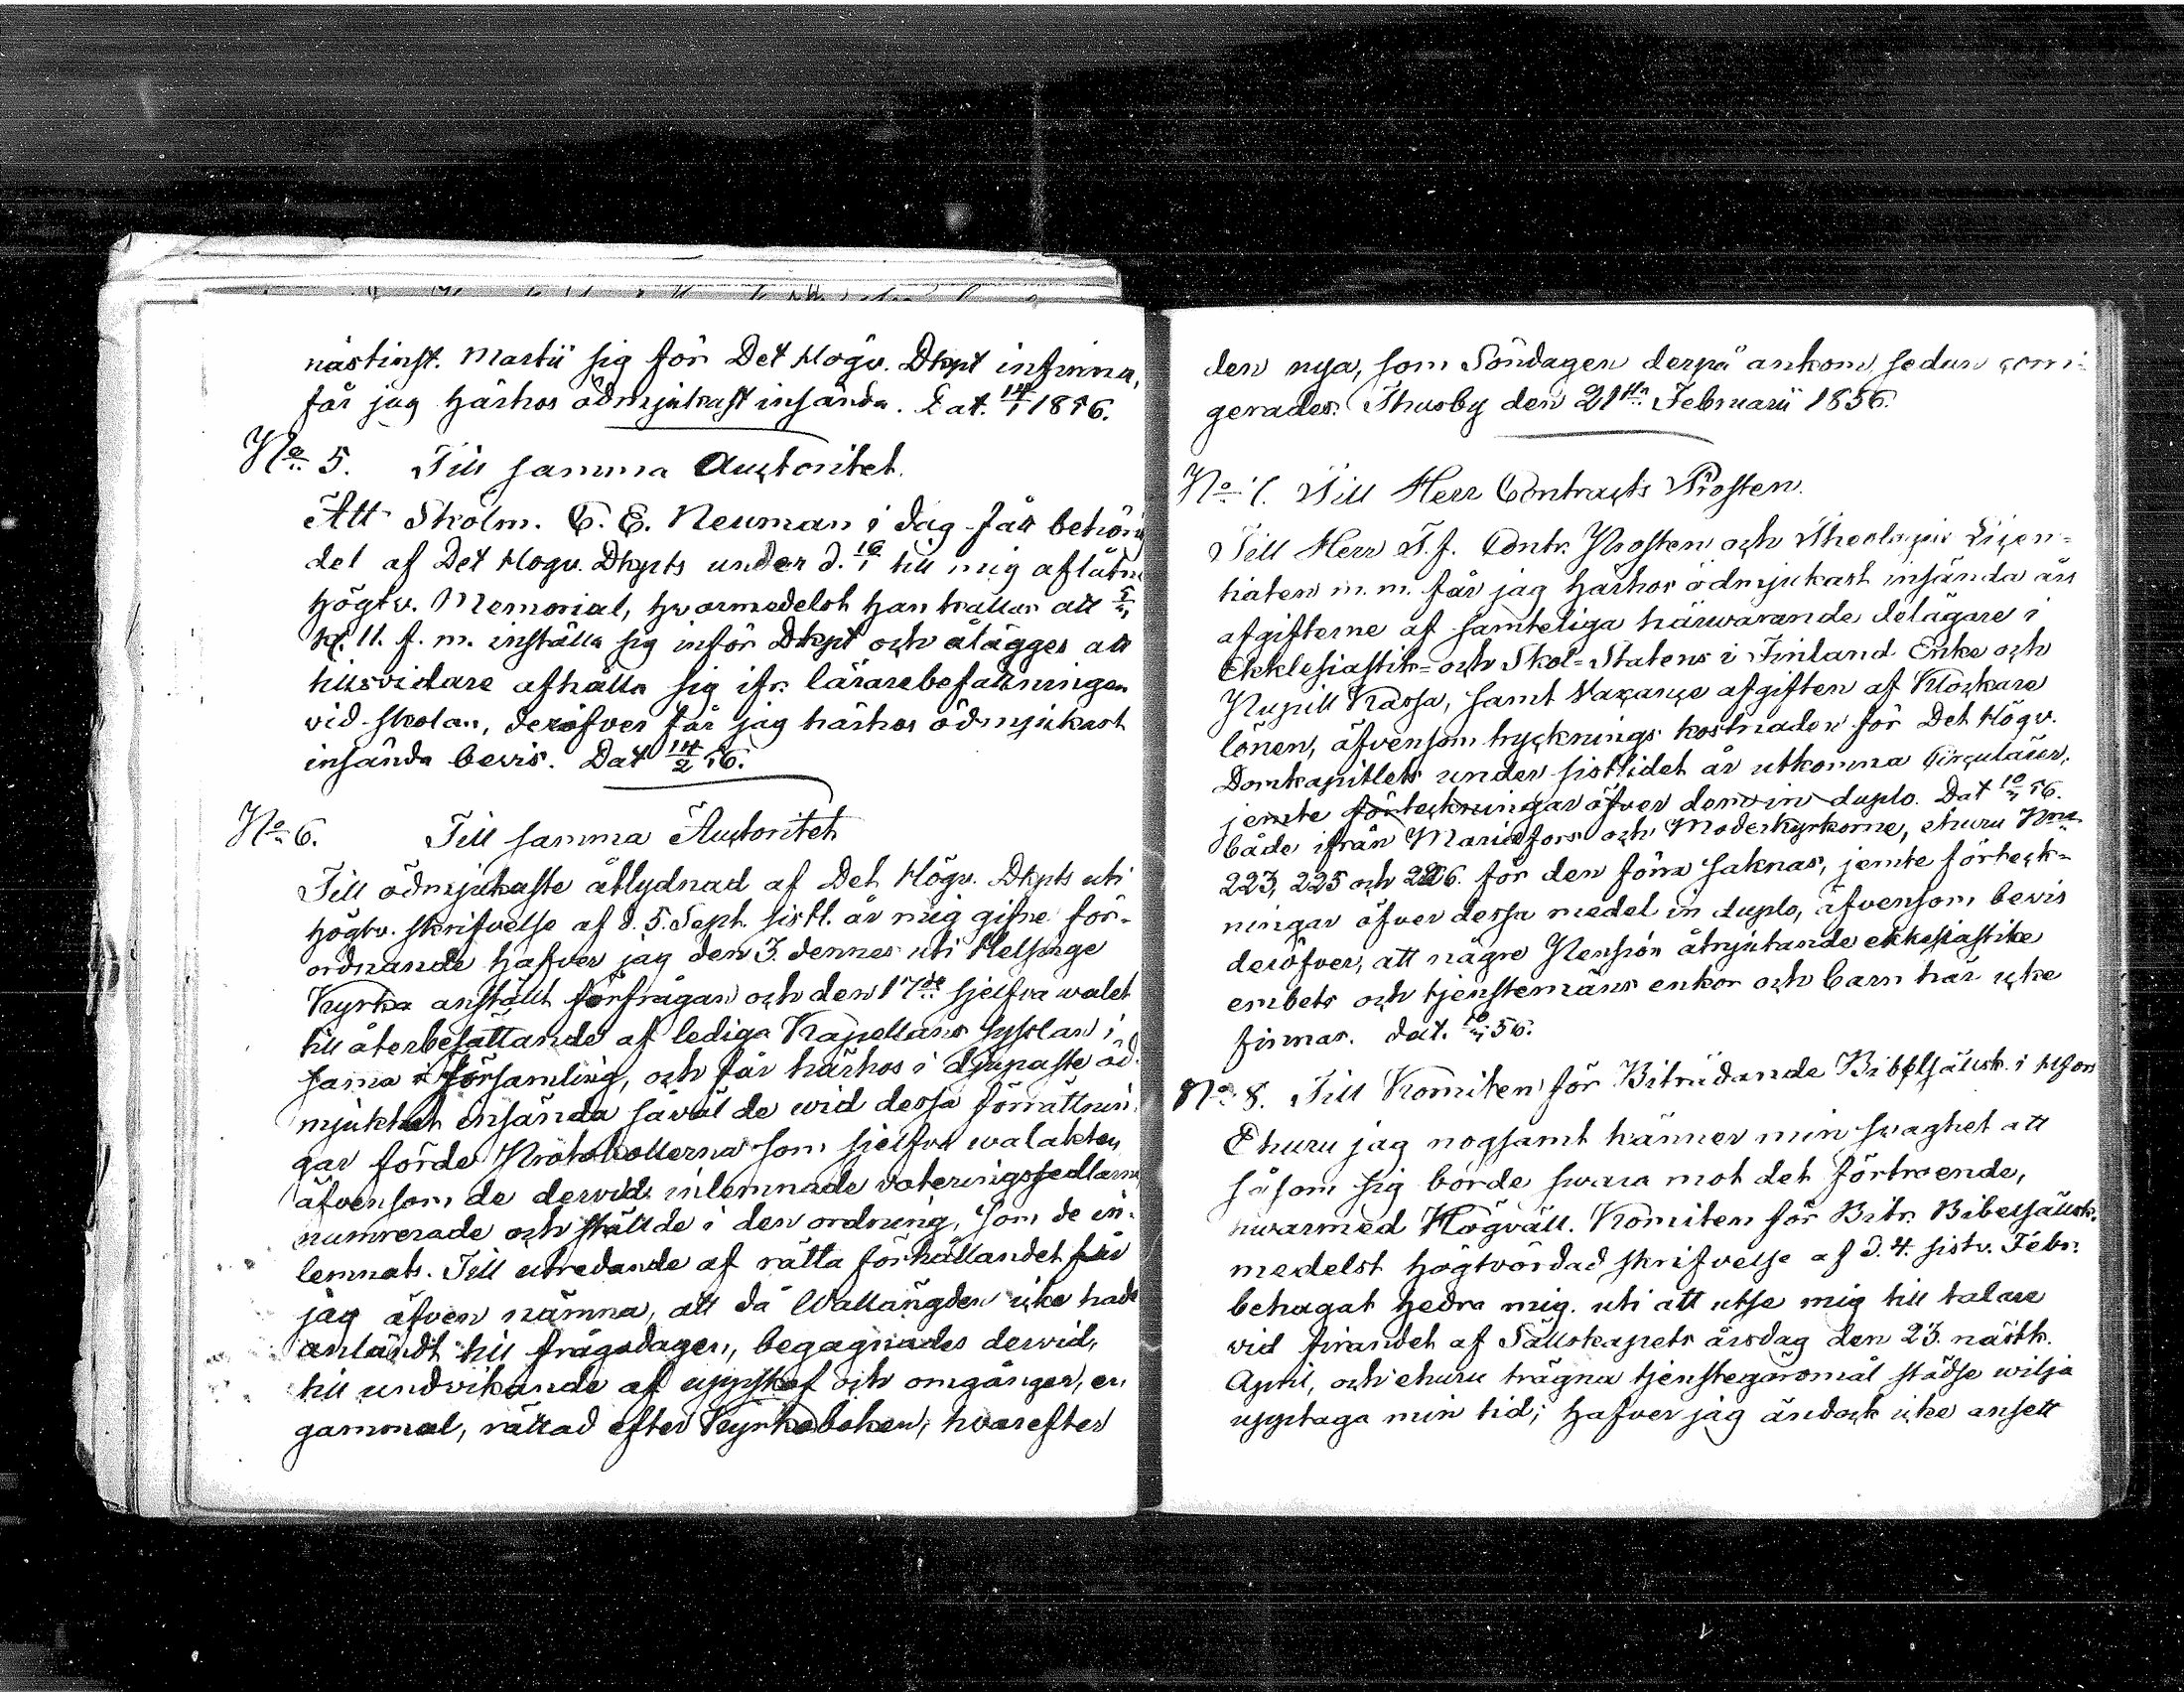 nästinst. Martii sig för Det Högv. Dkpt infinna,
får jag härhos ödmjukast insända. Dat. 14/1 1856.
No 5. Till samma Auctoritet.
Att Skolm. C. E. Neuman i dag fått behörig
del af Det Högv. Dkpts under d. 16/1 till mig aflåtne
högtv. Memorial, hvarmedelst han kallas att 5/3
kl. 11. f. m. inställa sig inför Dkpt och ålägges att
tillsvidare afhålla sig ifr. lärarebefattningen
vid skolan, deröfver får jag härhos ödmjukast
insända bevis. Dat 14/2 56.
No 6. Till samma Auctoritet
Till ödmjukaste åtlydnad af Det Högv. Dkpts uti
högtv. skrifvelse af d. 5. Sept. sistl. år mig gifne för-
ordnande hafver jag den 3. dennes uti Helsinge
Kyrka anställt förfrågan och den 17de sjelfva walet
till återbesättande af lediga Kapellans sysslan i
sama församling, och får härhos i djupaste öd-
mjukhet insända såväl de wid dessa förrättnin-
gar förde Protokollerna som sjelfva walakten
äfvensom de dervid inlemnade voteringssedlarne,
numrerade och ställde i den ordning, som de in-
lemnats. Till utredande af rätta förhållandet får
jag äfven nämna, att då Wallängden icke hade
anländt till frågodagen, begagnades dervid,
till undvikande af uppskof och omgångar, en
gammal, rättad efter Kyrkoboken, hvarefter
den nya, som Söndagen derpå ankom, sedan corri-
gerades. Thusby den 21sta Februarii 1856.
No 7. Till Herr Contracts Prosten.
Till Herr T. f. Contr. Prosten och Theologie Licen-
tiaten m. m. får jag härhos ödmjukast insända års
afgifterne af samteliga härwarande delägare i
Ekklesiastik- och Skol-Statens i Finland Enke och
Pupill Kassa, samt Vacance afgiften af Klockare
lönen, äfvensom tryckningskostnaden för Det Högv.
Domkapitlets under sistlidet år utkomna Circulairer,
jemte förteckningar öfver dem in duplo. Dat 10/3 56.
både ifrån Mariefors och Moderkyrkorne, ehuru Nris
223, 225 och 226. för den förra saknas, jemte förteck-
ningar öfver dessa medel in duplo, äfvensom bevis
deröfver, att någre Pension åtnjutande ekklesiastike
embets och tjenstemäns enkor och barn här icke
finnas. Dat. 10/3 56.
No 8. Till Komiten för Biträdande Bibelsällsk. i Hfors
Ehuru jag nogsamt känner min svaghet att
såsom sig borde svara mot det förtroende,
hvarmed Högväll. Komiten för Bitr. Bibelsällsk.
medelst högtvördad skrifvelse af d. 4. sistv. Febr.
behagat hedra mig, uti att utse mig till talare
vid firandet af Sällskapets årsdag den 23. nästk.
April, och ehuru trägna tjenstegöromål städse wilja
upptaga min tid; hafver jag ändock icke ansett